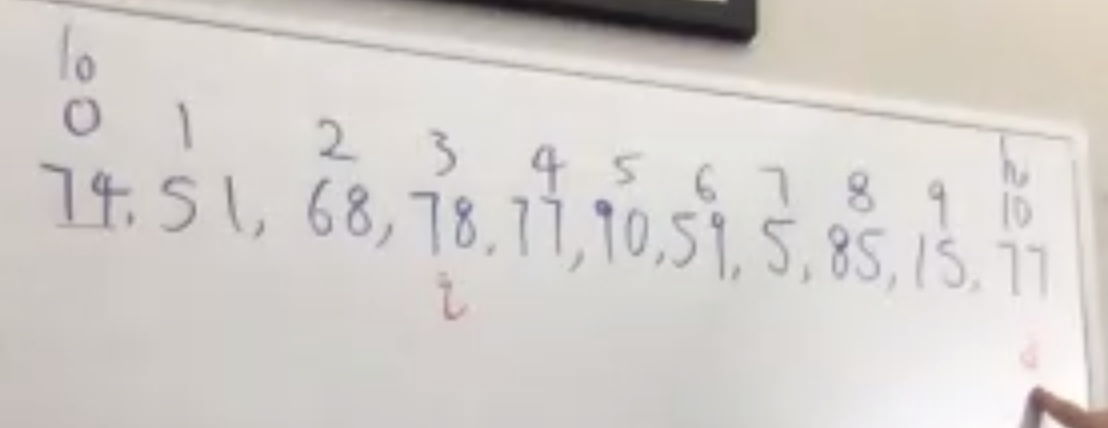 lo
0 1 2 3 4 5 6 7 8 9 10
74, 51, 68, 78, 77, 90, 59, 5, 85, 15, 77
hi
i